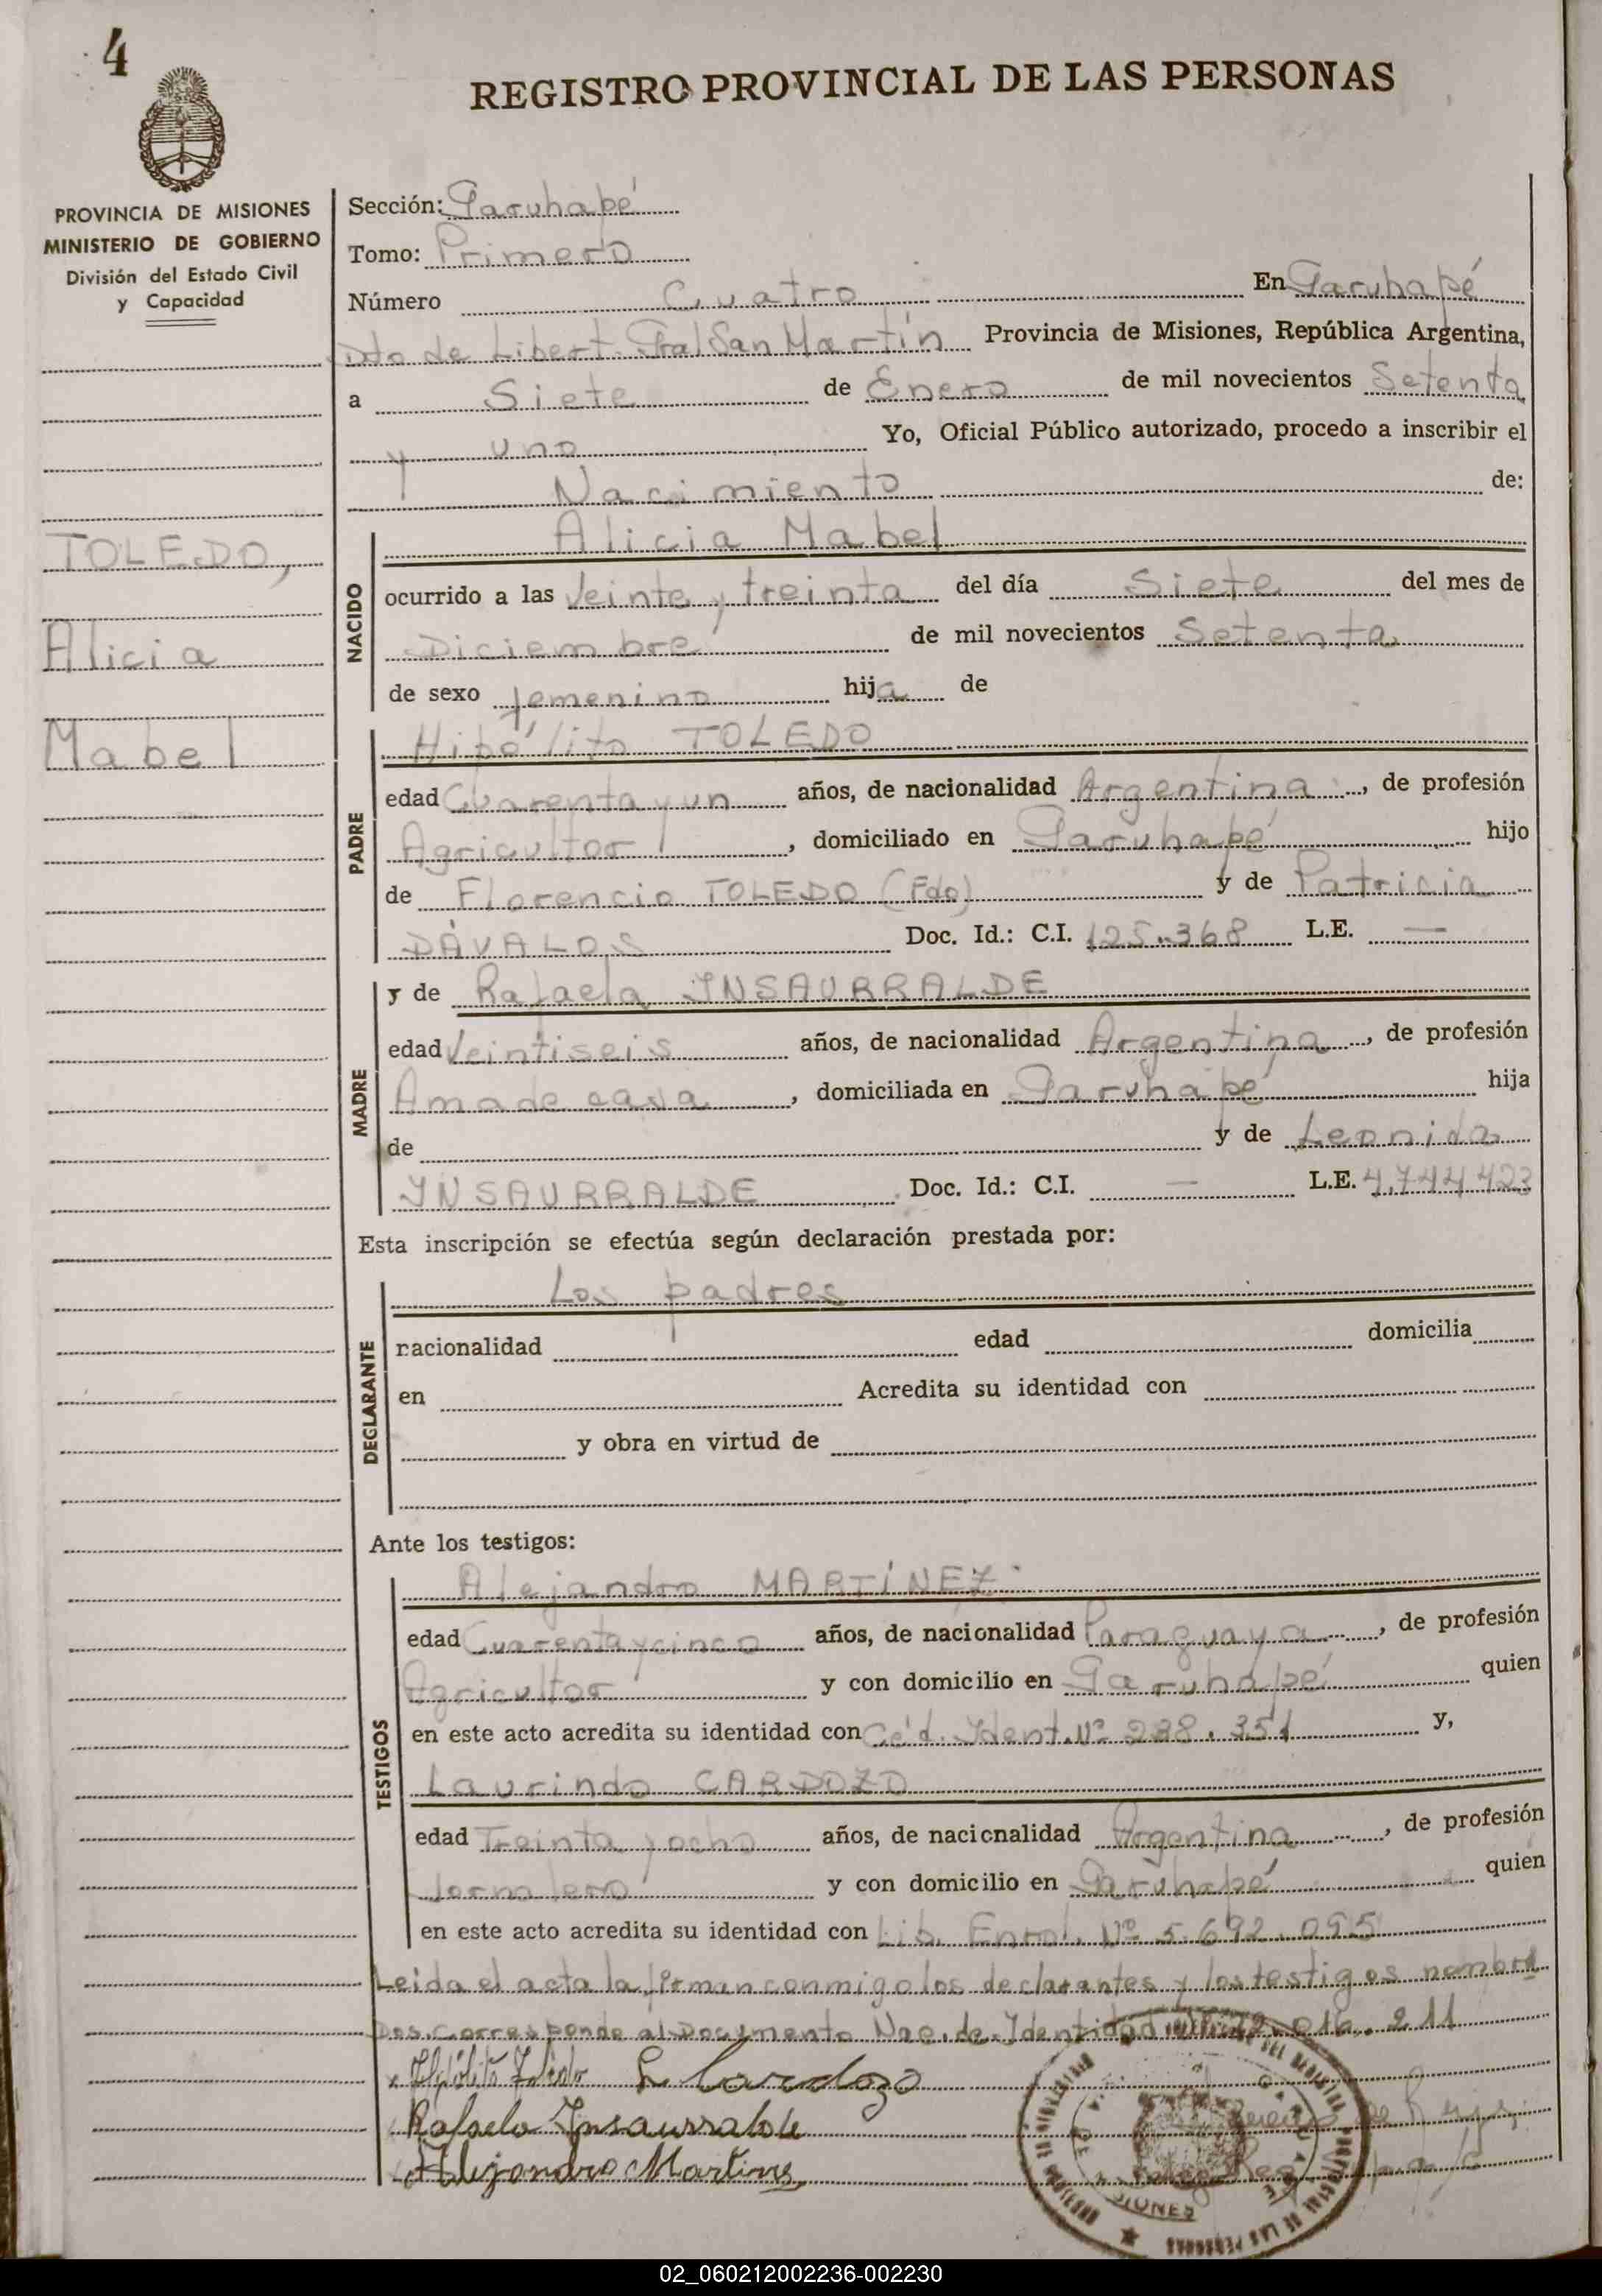 4
REGISTRO PROVINCIAL DE LAS PERSONAS
PROVINCIA DE MISIONES
MINISTERIO DE GOBIERNO
División del Estado Civil
y Capacidad
TOLEDO,
Alicia
Mabel
Sección: Garuhapé
Tomo: Primero
Número Cuatro En Garuhapé
Dto de Libert. Gral San Martín Provincia de Misiones, República Argentina,
a Siete de Enero de mil novecientos Setenta
y uno Yo, Oficial Público autorizado, procedo a inscribir el
Nacimiento de:
NACIDO
Alicia Mabel
ocurrido a las Veinte y treinta del día Siete del mes de
Diciembre de mil novecientos Setenta
de sexo femenino hija de
PADRE
Hipólito TOLEDO
edad Cuarenta y un años, de nacionalidad Argentina, de profesión
Agricultor, domiciliado en Garuhapé hijo
de Florencio TOLEDO (Fdo) y de Patricia
DÁVALOS Doc. Id.: C.I. 125.368 L.E. —
MADRE
y de Rafaela YNSAURRALDE
edad Veintiseis años, de nacionalidad Argentina, de profesión
Ama de casa, domiciliada en Garuhapé hija
de y de Leonida
YNSAURRALDE Doc. Id.: C.I. — L.E. 4.744.423
Esta inscripción se efectúa según declaración prestada por:
DECLARANTE
Los padres
nacionalidad edad domicilia
en Acredita su identidad con
y obra en virtud de
Ante los testigos:
TESTIGOS
Alejandro MARTÍNEZ
edad Cuarenta y cinco años, de nacionalidad Paraguaya, de profesión
Agricultor y con domicilio en Garuhapé quien
en este acto acredita su identidad con Céd. Ydent. Nº 238.351 y,
Laurindo CARDOZO
edad Treinta y ocho años, de nacionalidad Argentina, de profesión
Jornalero y con domicilio en Garuhapé quien
en este acto acredita su identidad con Lib. Enrol. Nº 5.692.095
Leida el acta la firman conmigo los declarantes y los testigos nombra
Dos. Corresponde al Documento Nac. de Ydentidad 016.211
x Hipólito Toledo L Cardozo
Rafaela Ynsaurralde
Alejandro Martines
MISIONES
02_060212002236-002230